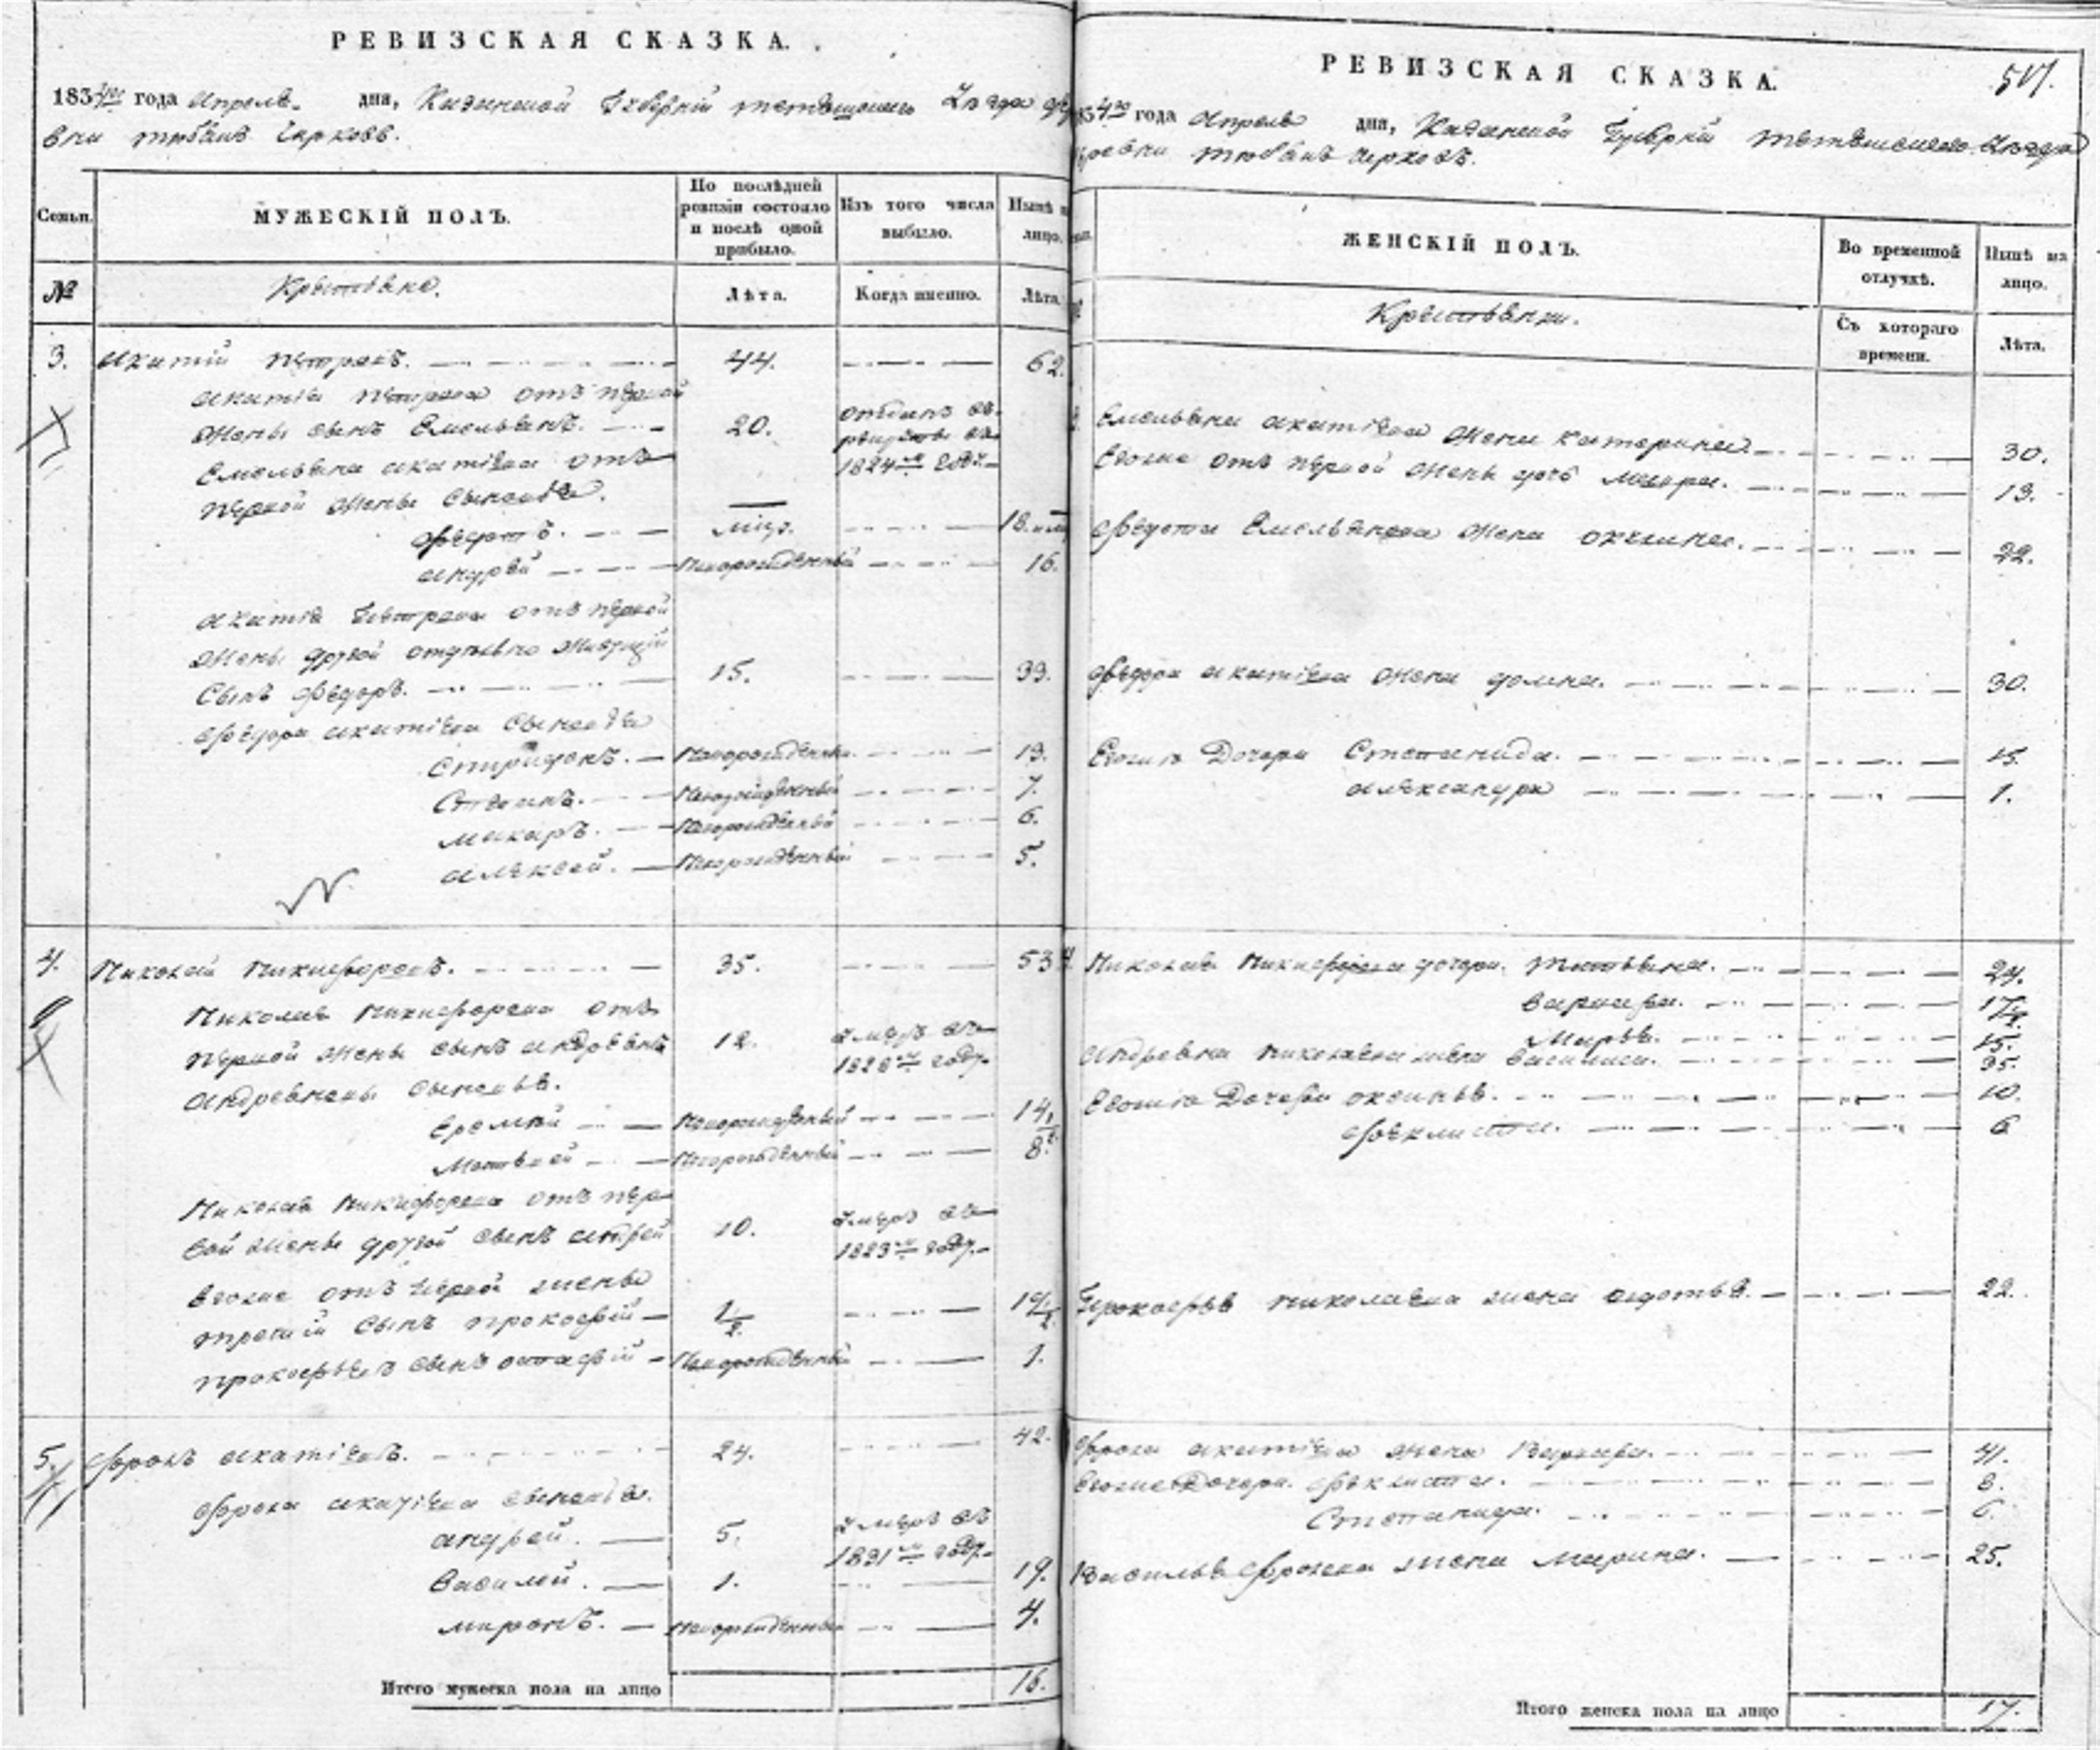 РЕВИЗСКАЯ СКАЗКА.
1834го года Апреля дня, Казанской Губернiи тетюшского Уезда де
вни тюбякъ Чирковъ.
Семьи.
МУЖЕСКIЙ ПОЛЪ.
По послѣдней ревизiи состояло и послѣ оной прибыло.
Изъ того числа выбыло.
Нынѣ на лицо.
№
Крестьяне.
Лѣта.
Когда именно.
Лѣта.
3. Акатiй Петровъ. 44. 62.
Акатiя Петрова отъ первой
жены сынъ Емельянъ. 20. отданъ въ рекруты въ 1824м годе
Емельяна акатiева отъ
первой жены сыновья.
Федотъ. 18.
Андрей новорожденный 16.
Акатiя Петрова отъ первой
жены другой отдельно живущiй
Сынъ Федоръ. 15. 33.
Федора акатiева сыновья
Спиридонъ. новорожденный 13.
Степанъ. новорожденный 7.
Макаръ. новорожденный 6.
Алексей. новорожденный 5.
4. Николай Никифоровъ. 35. 53
Николая Никифорова отъ
первой жены сынъ Андреянъ 12. умеръ въ 1826м году
Андреяновы сыновья.
Еремей новорожденный 14 1/2
Матвей новорожденный 8.
Николая Никифорова отъ пер
вой жены другой сынъ андрей 10. умеръ въ 1823м году
Евоже отъ первой жены
третiй сынъ прокофей 1/2. 19 1/2
прокофьевъ сынъ остафiй новорожденный 1.
5. Фролъ акатiевъ. 24. 42.
Фрола акатiева сыновья.
андрей. 5. умеръ въ 1831м году
Василей. 1. 19.
миронъ. новорожденный 4.
Итого мужеска пола на лицо 16.
РЕВИЗСКАЯ СКАЗКА.
1834го года Апреля дня, Казанской Губернiи тетюшского Уезда
деревни тюбякъ Чирковъ.
ЖЕНСКIЙ ПОЛЪ.
Во временной отлучкѣ.
Нынѣ на лицо.
Крестьянки.
Съ котораго времени.
Лѣта.
Емельяна акатiева жена катерина 30.
Евоже отъ первой жены дочь мавра. 13.
Федота Емельянова жена 22.
Федора акатiева жена домна. 30.
Евоже Дочери Степанида. 15.
александра 1.
Николая Никифорова дочери. татьяна. 24.
варвара. 17 1/2
Марья. 15.
Андреяна николаева жена василиса. 35.
Евоже Дочери оксинья. 10.
феклиста. 6
Прокофья николаева жена авдотья. 22.
Фрола акатiева жена Варвара. 41.
Евоже Дочери. феклиста. 8.
Степанида. 6.
Василья фролова жена марина. 25.
Итого женска пола на лицо 17.